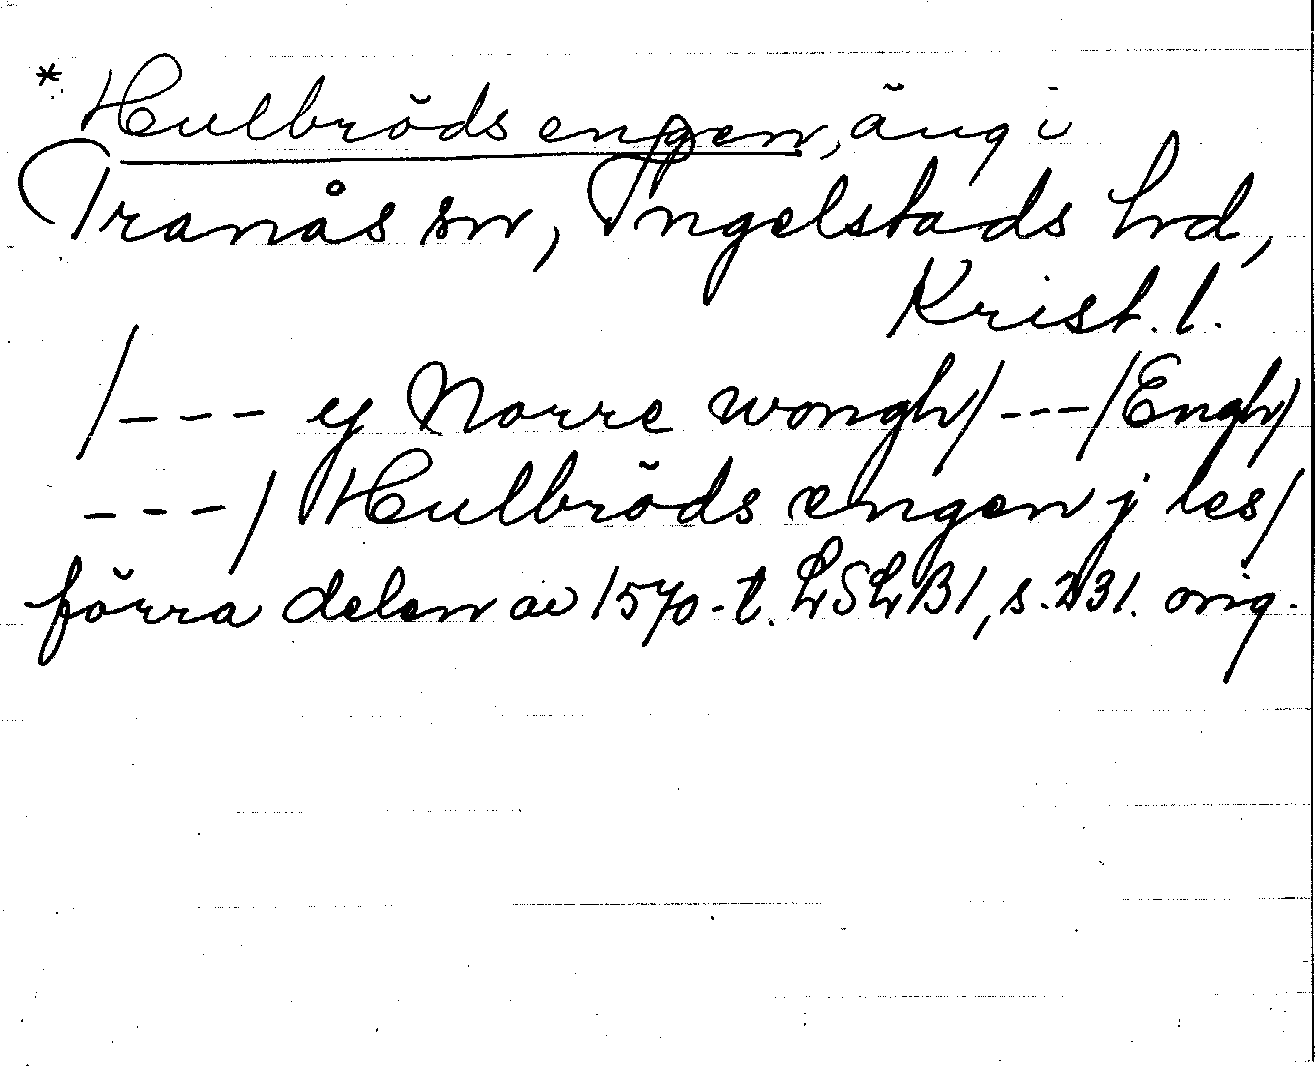 * Hulbrödsengen, äng i
Tranås sn, Ingelstads hd,
Krist. l.
/--- ey Norre wongh/---/Engh/
---/ Hulbröds engen j les/
förra delen av 1570-t. LSLB1, s. 231. orig.